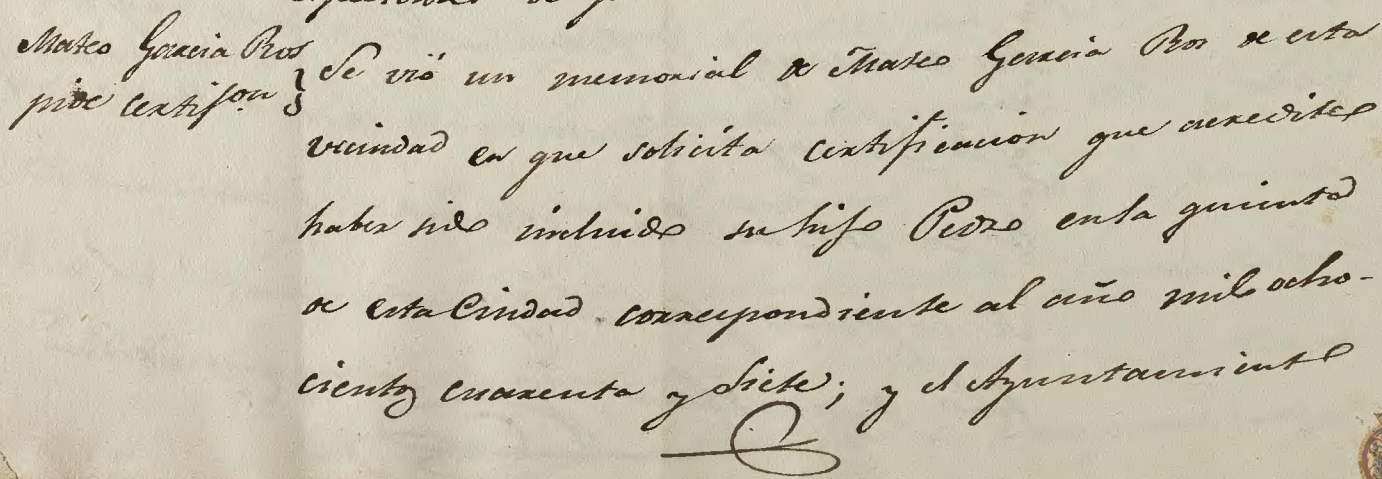 Mateo Garcia Ros
pide certif.on
Se vió un memorial de Mateo Garcia Ros de esta
vecindad en que solicita certificacion que acredite
haber sido incluido su hijo Pedro en la quinta
de esta Ciudad correspondiente al año mil ocho-
cientos cuarenta y siete; y el Ayuntamiento